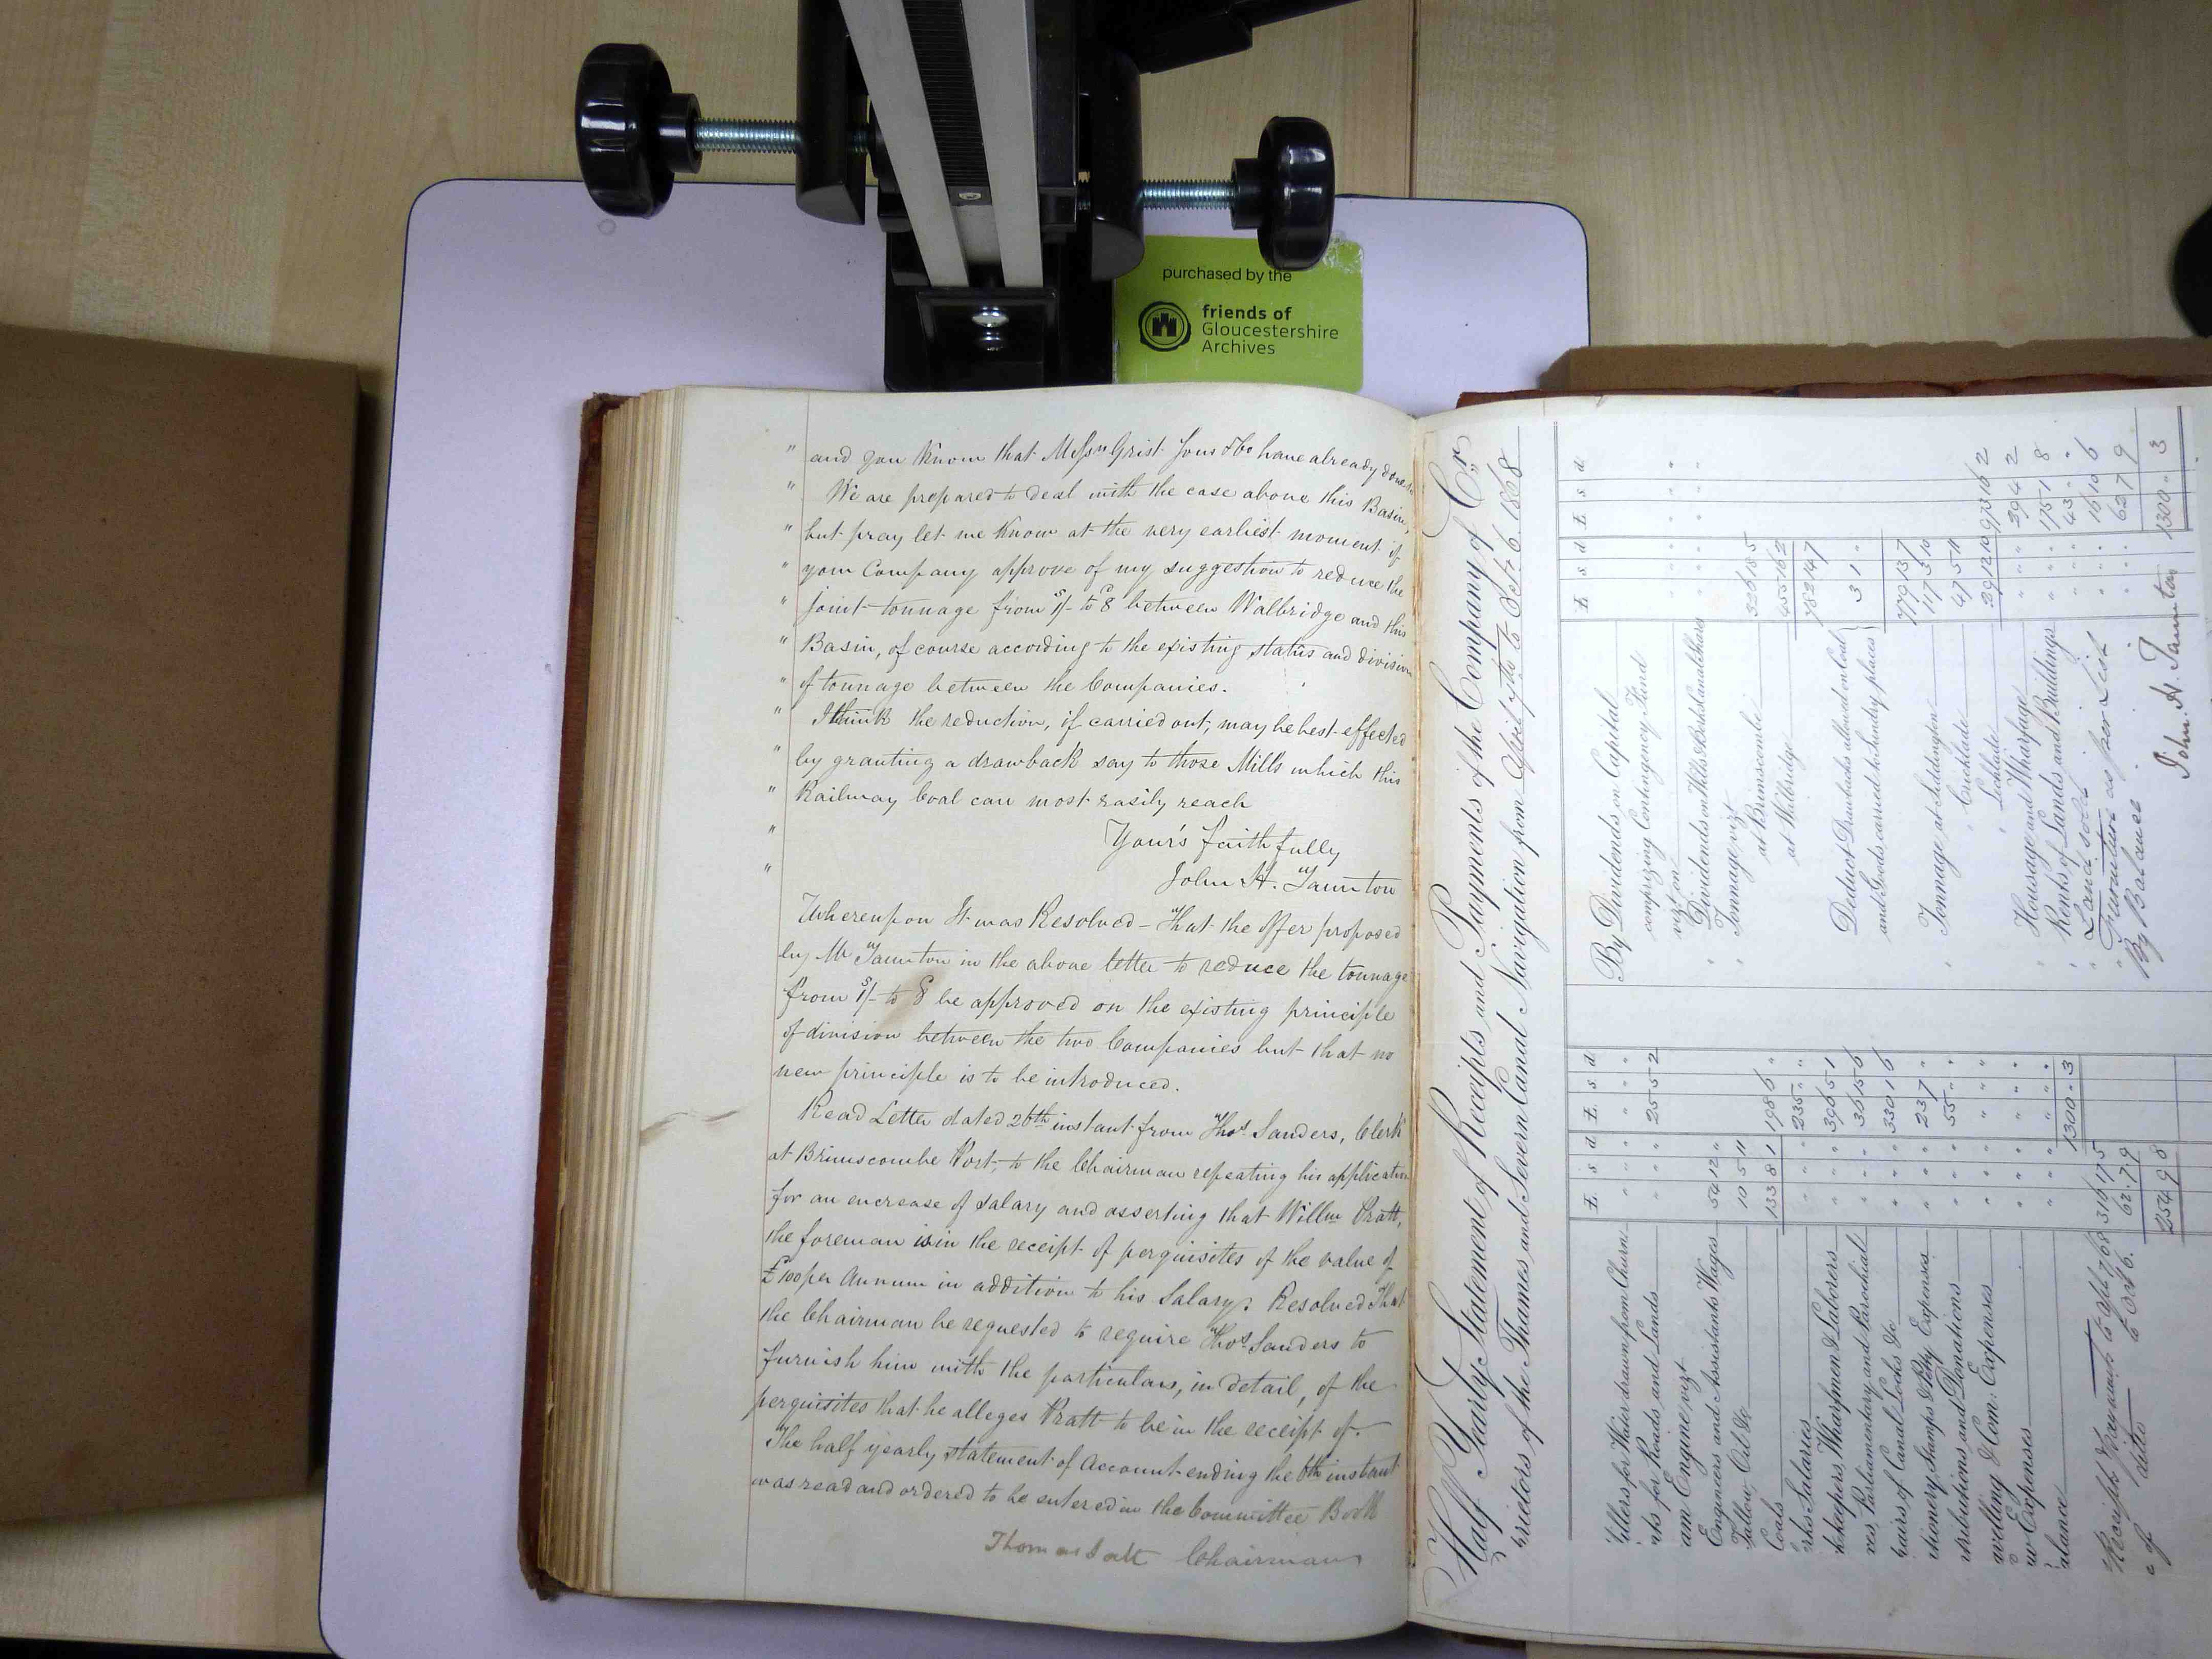 purchased by the
friends of
Gloucestershire
Archives
" and you know that Messrs Grist Sons & Co have already done
" We are prepared to deal with the case above this Basin,
" but pray let me know at the very earliest moment if
" your Company approve of my suggestion to reduce the
" joint tonnage from 1/- to 8d between Walbridge and this
" Basin, of course according to the existing status and division
" of tonnage between the Companies.
" I think the reduction, if carried out, may be best effected
" by granting a drawback say to those Mills which this
" Railway Coal can most easily reach
" Your's faithfully
" John H. Taunton
Whereupon It was Resolved – That the offer proposed
by Mr Taunton in the above letter to reduce the tonnage
from 1/- to 8d be approved on the existing principle
of division between the two Companies but that no
new principle is to be introduced.
Read Letter dated 26th instant from Thos Sanders, Clerk
at Brimscombe Port, to the Chairman repeating his application
for an encrease of salary and asserting that Willm Pratt,
the foreman is in the receipt of perquisites of the value of
£100 per Annum in addition to his Salary. Resolved That
the Chairman be requested to require Thos Sanders to
furnish him with the particulars, in detail, of the
perquisites that he alleges Pratt to be in the receipt of.
The half yearly statement of Account ending the 6th instant
was read and ordered to be entered in the Committee Book
Thomas Salt Chairman
Half Yearly Statement of Receipts and Payments of the Company of
Cr
prietors of the Thames and Severn Canal Navigation from April 7th to Octr 6. 1868
£ s d £ s d
illers for Water drawn from Churn " " " " " "
nts for Roads and Lands " " " 25 5 2
am Engine vizt
Engineers and Assistants Wages 54 12 "
Tallow, Oil &c 10 5 11
Coals 133 8 1 198 6 "
rks Salaries " 235 " "
kkeepers, Wharfmen & Laborers " 396 5 1
xes, Parliamentary and Parochial " 36 15 6
pairs of Canal Locks &c " 330 16
tionery, Stamps & Petty Expenses " 23 7
ntributions and Donations " 55 " "
avelling & Com: Expenses " " "
w Expenses " " "
alance " 1300 " 3
£ s d £ s d
By Dividends on Capital
comprizing Contingency Fund
vizt on " " "
" Dividends on Wilts & Berks Canal Shares " " "
" Tonnage vizt
at Brimscombe 326 18 5
at Walbridge 455 16 2
782 14 7
Deduct Drawbacks allowed on Coal
and Goods carried to sundry places } 3 1 "
779 13 7
" Tonnage at Siddington 117 3 10
" Cricklade 47 5 11
" Lechlade 29 12 10 973 16 2
" Housage and Wharfage " " " 29 4 2
" Rents of Lands and Buildings " " " 175 1 8
" Land sold " " " 43 " "
" Furniture as per List " " " 16 10 6
By Balance " " " 62 7 9
1300 " 3
John H. Taunton